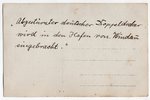 "Abgestürzter deutscher Doppeldecker
wird in den Hafen von Windau
eingebracht."